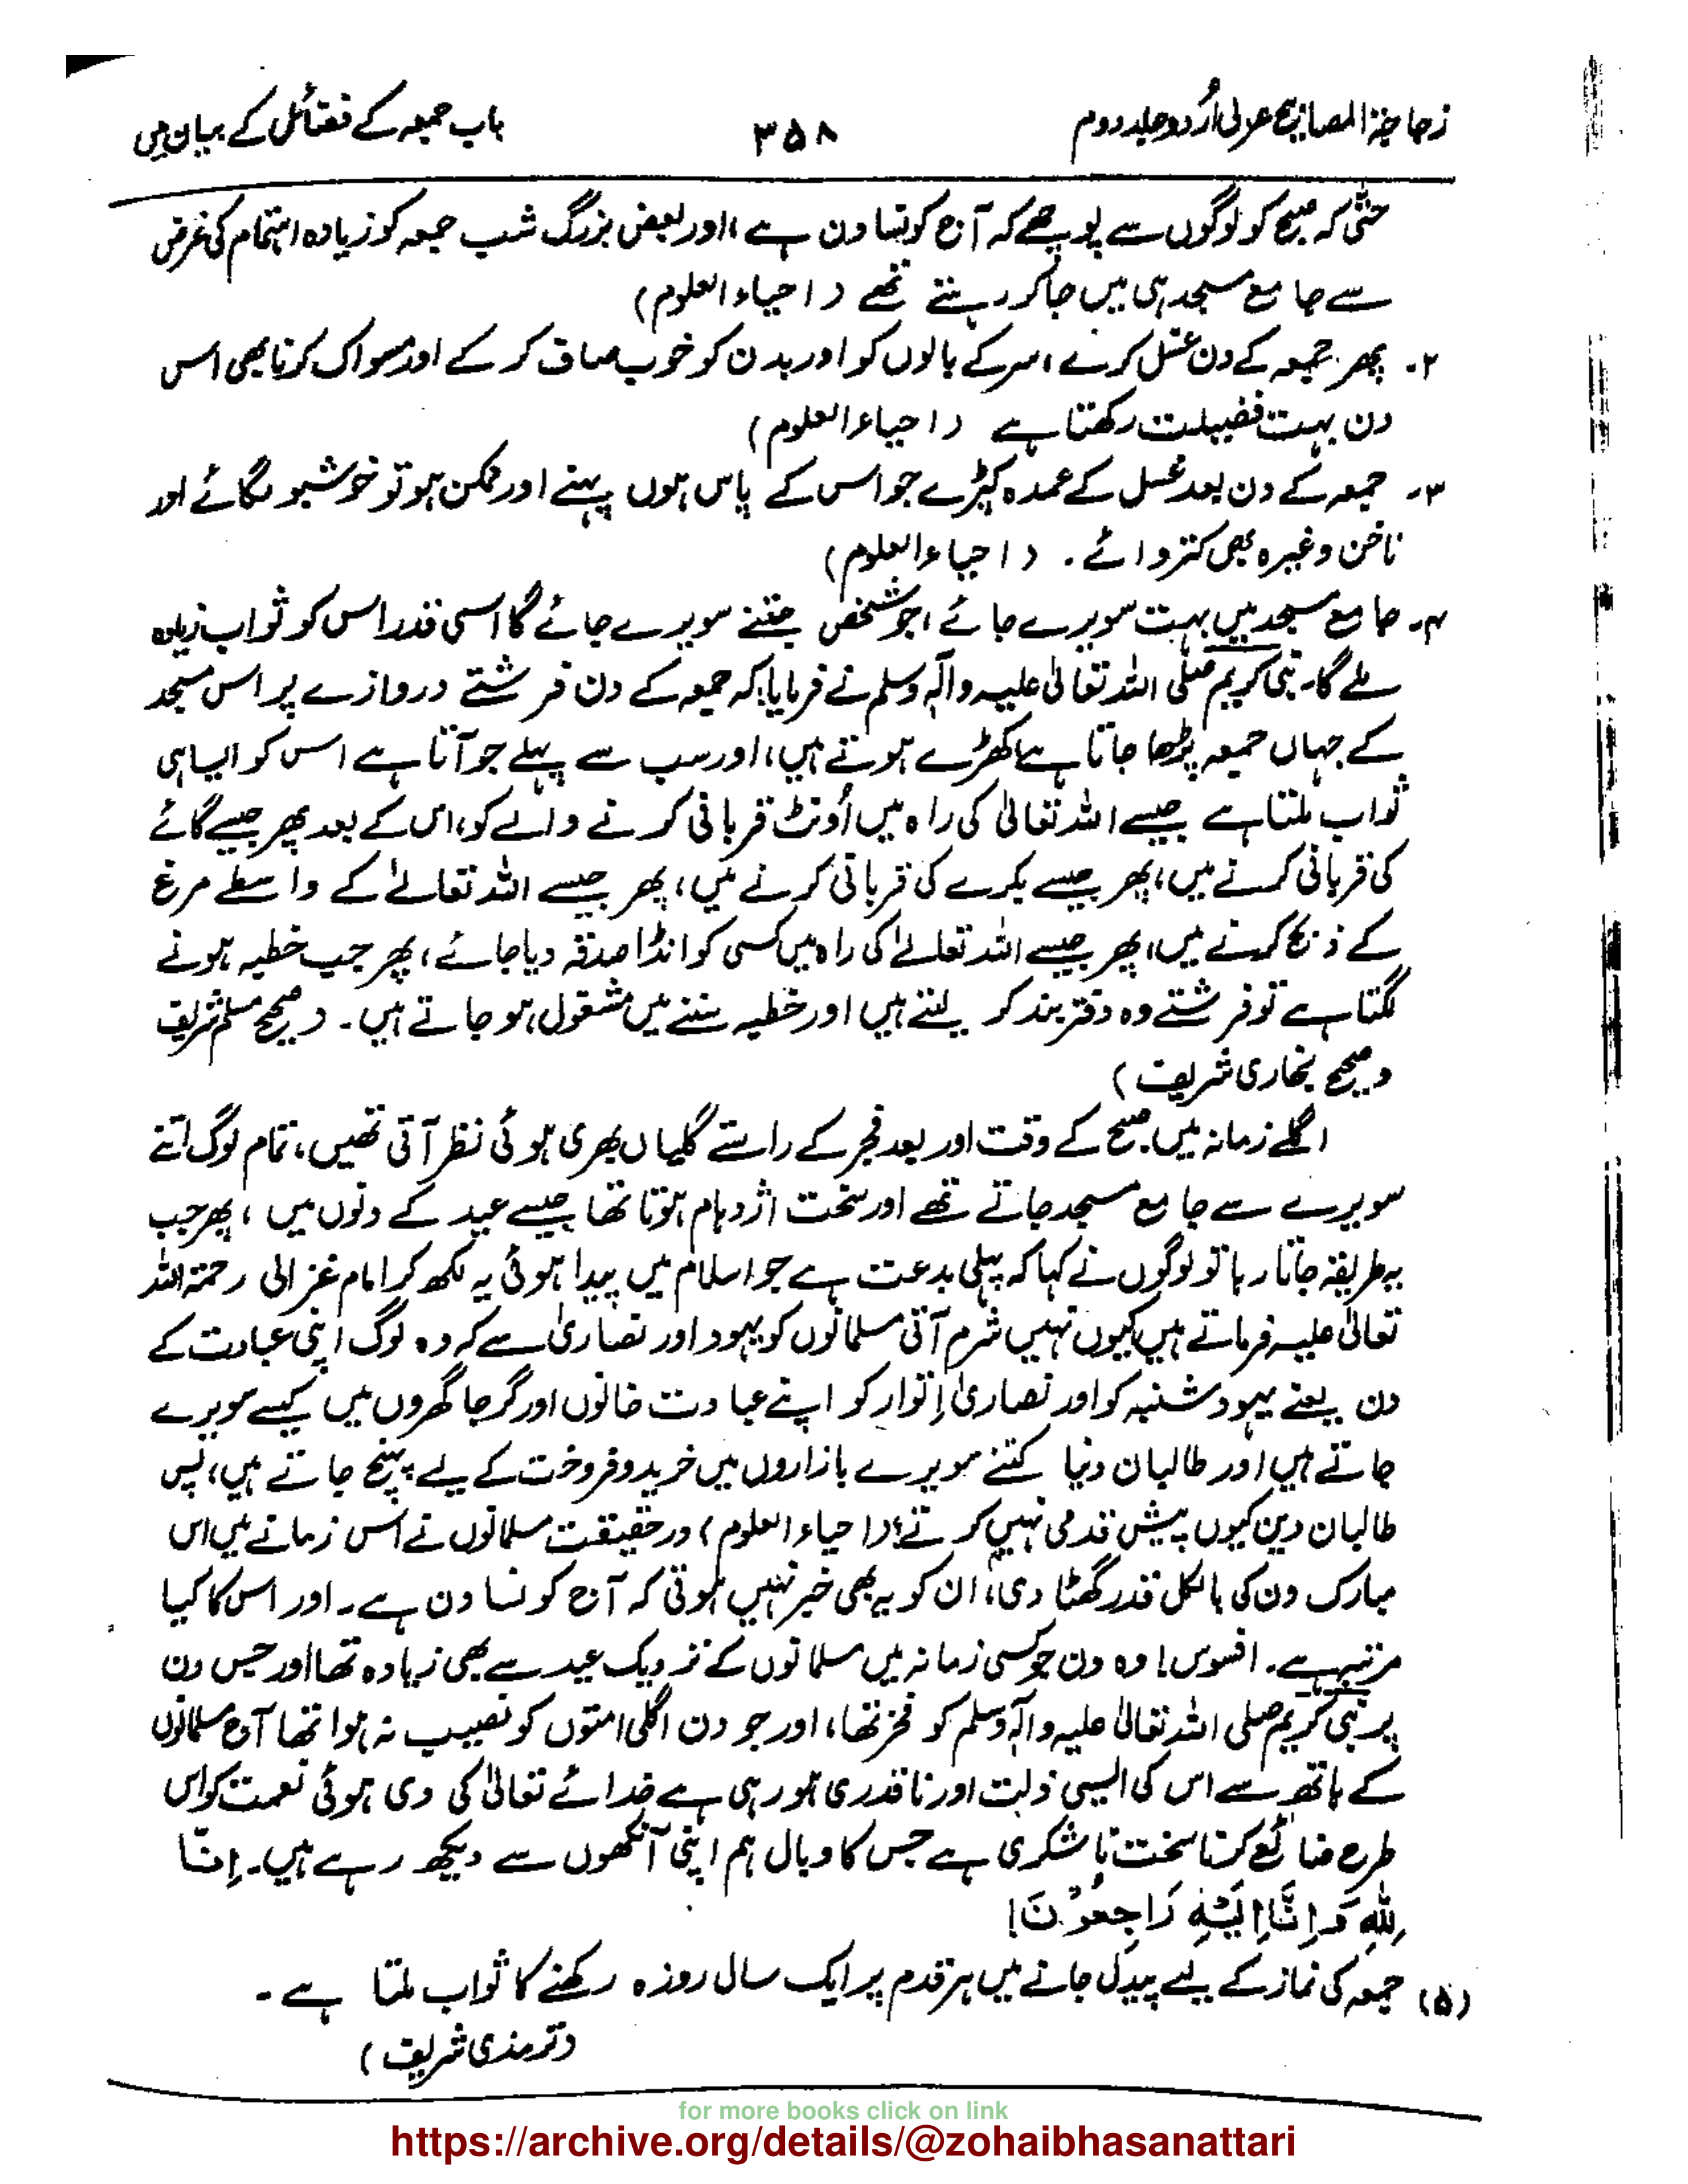 زجاجۃ المصابیح عربی اُردو جلد دوم
۳۵۸
باب جمعہ کے فضائل کے بیان میں
حتّٰی کہ صبح کو لوگوں سے پوچھے کہ آج کونسا دن ہے، اور بعض بزرگ شب جمعہ کو زیادہ اہتمام کی غرض
سے جامع مسجد ہی میں جا کر رہتے تھے (احیاء العلوم)
۲۔ پھر جمعہ کے دن غسل کرے، سر کے بالوں کو اور بدن کو خوب صاف کر کے اور مسواک کرنا بھی اس
دن بہت فضیلت رکھتا ہے (احیاء العلوم)
۳۔ جمعہ کے دن بعد غسل کے عمدہ کپڑے جو اس کے پاس ہوں پہنے اور ممکن ہو تو خوشبو لگائے اور
ناخن وغیرہ بھی کتروائے۔ (احیاء العلوم)
۴۔ جامع مسجد میں بہت سویرے جائے، جو شخص جتنے سویرے جائے گا اسی قدر اس کو ثواب زیادہ
ملے گا۔ نبی کریم صلی اللہ تعالیٰ علیہ وآلہٖ وسلم نے فرمایا کہ جمعہ کے دن فرشتے دروازے پر اس مسجد
کے جہاں جمعہ پڑھا جاتا ہے کھڑے ہوتے ہیں، اور سب سے پہلے جو آتا ہے اس کو ایسا ہی
ثواب ملتا ہے جیسے اللہ تعالیٰ کی راہ میں اُونٹ قربانی کرنے والے کو، اس کے بعد پھر جیسے گائے
کی قربانی کرنے میں، پھر جیسے بکرے کی قربانی کرنے میں، پھر جیسے اللہ تعالےٰ کے واسطے مرغ
کے ذبح کرنے میں، پھر جیسے اللہ تعالےٰ کی راہ میں کسی کو انڈا صدقہ دیا جائے، پھر جب خطبہ ہونے
لگتا ہے تو فرشتے وہ دفتر بند کر لیتے ہیں اور خطبہ سننے میں مشغول ہو جاتے ہیں۔ (صحیح مسلم شریف
و صحیح بخاری شریف)
اگلے زمانہ میں صبح کے وقت اور بعد فجر کے راستے گلیاں بھری ہوئی نظر آتی تھیں، تمام لوگ اتنے
سویرے سے جامع مسجد جاتے تھے اور سخت اژدہام ہوتا تھا جیسے عید کے دنوں میں، پھر جب
یہ طریقہ جاتا رہا تو لوگوں نے کہا کہ پہلی بدعت ہے جو اسلام میں پیدا ہوئی یہ لکھ کر امام غزالی رحمۃ اللہ
تعالیٰ علیہ فرماتے ہیں کیوں نہیں شرم آتی مسلمانوں کو یہود اور نصاریٰ سے کہ وہ لوگ اپنی عبادت کے
دن یعنے یہود شنبہ کو اور نصاریٰ اتوار کو اپنے عبادت خانوں اور گرجا گھروں میں کیسے سویرے
جاتے ہیں اور طالبان دنیا کتنے سویرے بازاروں میں خرید و فروخت کے لیے پہنچ جاتے ہیں، پس
طالبان دین کیوں پیش قدمی نہیں کرتے؛ (احیاء العلوم) درحقیقت مسلمانوں نے اس زمانے میں اس
مبارک دن کی بالکل قدر گھٹا دی، ان کو یہ بھی خبر نہیں ہوتی کہ آج کونسا دن ہے۔ اور اس کا کیا
مرتبہ ہے۔ افسوس! وہ دن جو کسی زمانہ میں مسلمانوں کے نزدیک عید سے بھی زیادہ تھا اور جس دن
پر نبی کریم صلی اللہ تعالیٰ علیہ وآلہٖ وسلم کو فخر تھا، اور جو دن اگلی امتوں کو نصیب نہ ہوا تھا آج مسلمانوں
کے ہاتھ سے اس کی ایسی ذلت اور ناقدری ہو رہی ہے خدائے تعالیٰ کی دی ہوئی نعمت کو اس
طرح ضائع کرنا سخت ناشکری ہے جس کا وبال ہم اپنی آنکھوں سے دیکھ رہے ہیں۔ اِنَّا
لِلّٰهِ وَاِنَّا اِلَيْهِ رَاجِعُوْنَ!
(۵) جمعہ کی نماز کے لیے پیدل جانے میں ہر قدم پر ایک سال روزہ رکھنے کا ثواب ملتا ہے۔
(ترمذی شریف)
for more books click on link
https://archive.org/details/@zohaibhasanattari